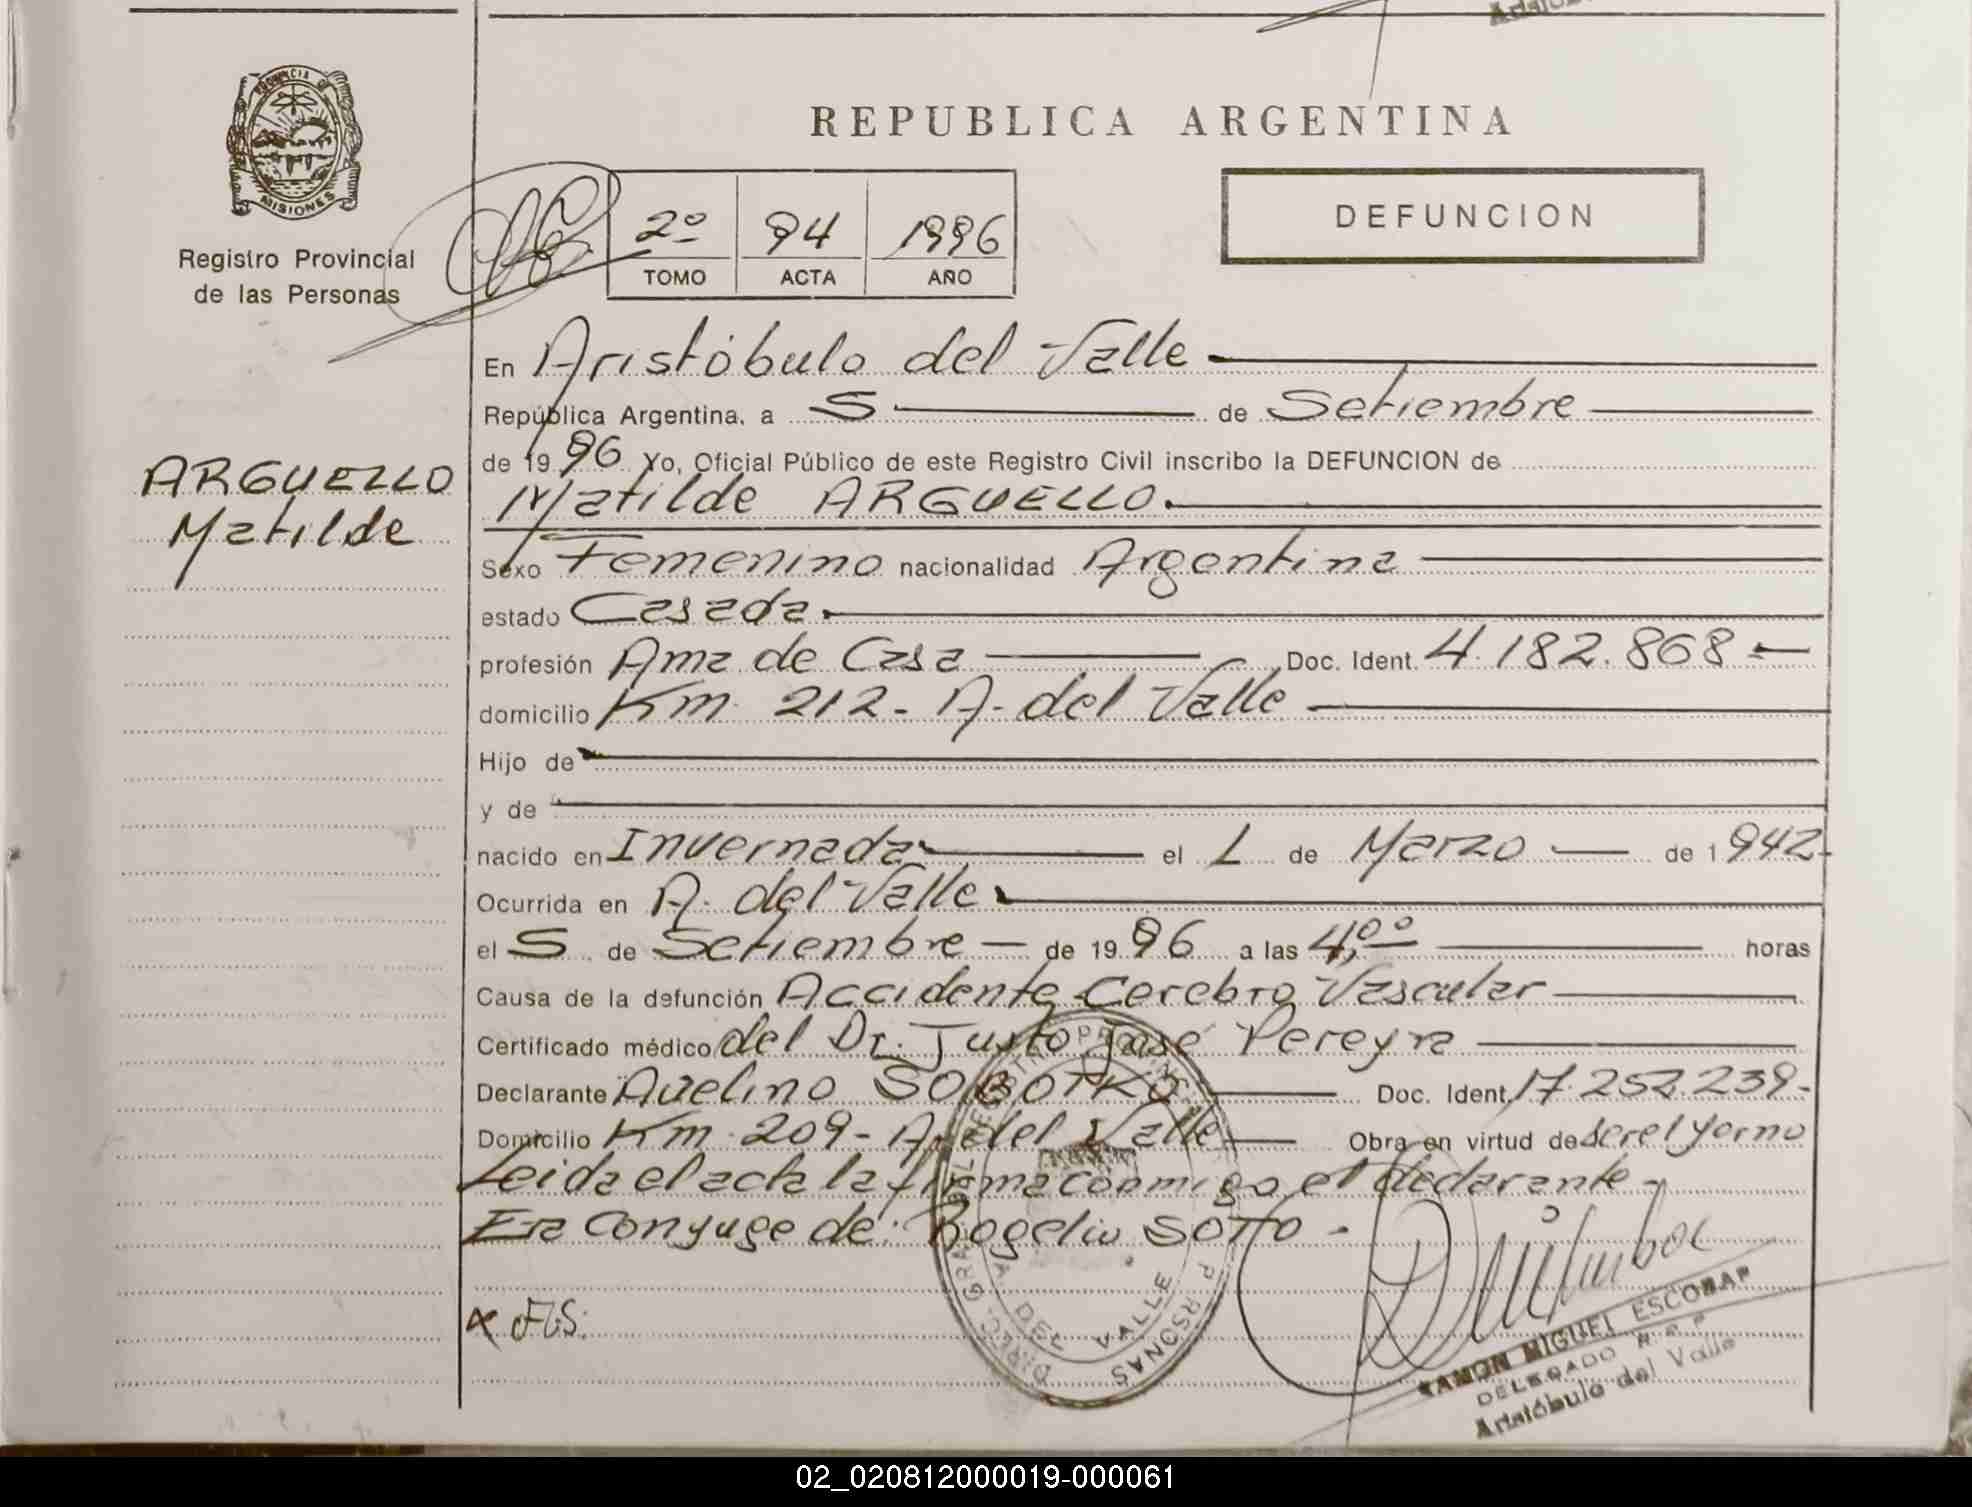 Aristób
PROVINCIA DE
MISIONES
REPUBLICA ARGENTINA
Registro Provincial
de las Personas
2º 94 1996
TOMO ACTA AÑO
DEFUNCION
En Aristóbulo del Valle
República Argentina, a 5 de Setiembre
de 1996 Yo, Oficial Público de este Registro Civil inscribo la DEFUNCION de
ARGUELLO
Matilde
Matilde ARGUELLO.
Sexo Femenino nacionalidad Argentina
estado Casada.
profesión Ama de Casa Doc. Ident. 4.182.868
domicilio Km. 212 - A. del Valle
Hijo de
y de
nacido en Invernada el 1 de Marzo de 1942-
Ocurrida en A. del Valle
el 5 de Setiembre de 1996 a las 4,00 horas
Causa de la defunción Accidente Cerebro Vascular
Certificado médico del Dr. Justo José Pereyra
Declarante Avelino SOBOTKO Doc. Ident. 17.252.239-
Domicilio Km. 209 - A. del Valle Obra en virtud de ser el yerno
Leida el acta la firma conmigo el declarante.
Era Conyuge de: Rogelio SOTTO -
DEL VALLE
PERSONAS
RAMON MIGUEL ESCOBAR
DELEGADO R.P.P.
Aristóbulo del Valle
02_020812000019-000061